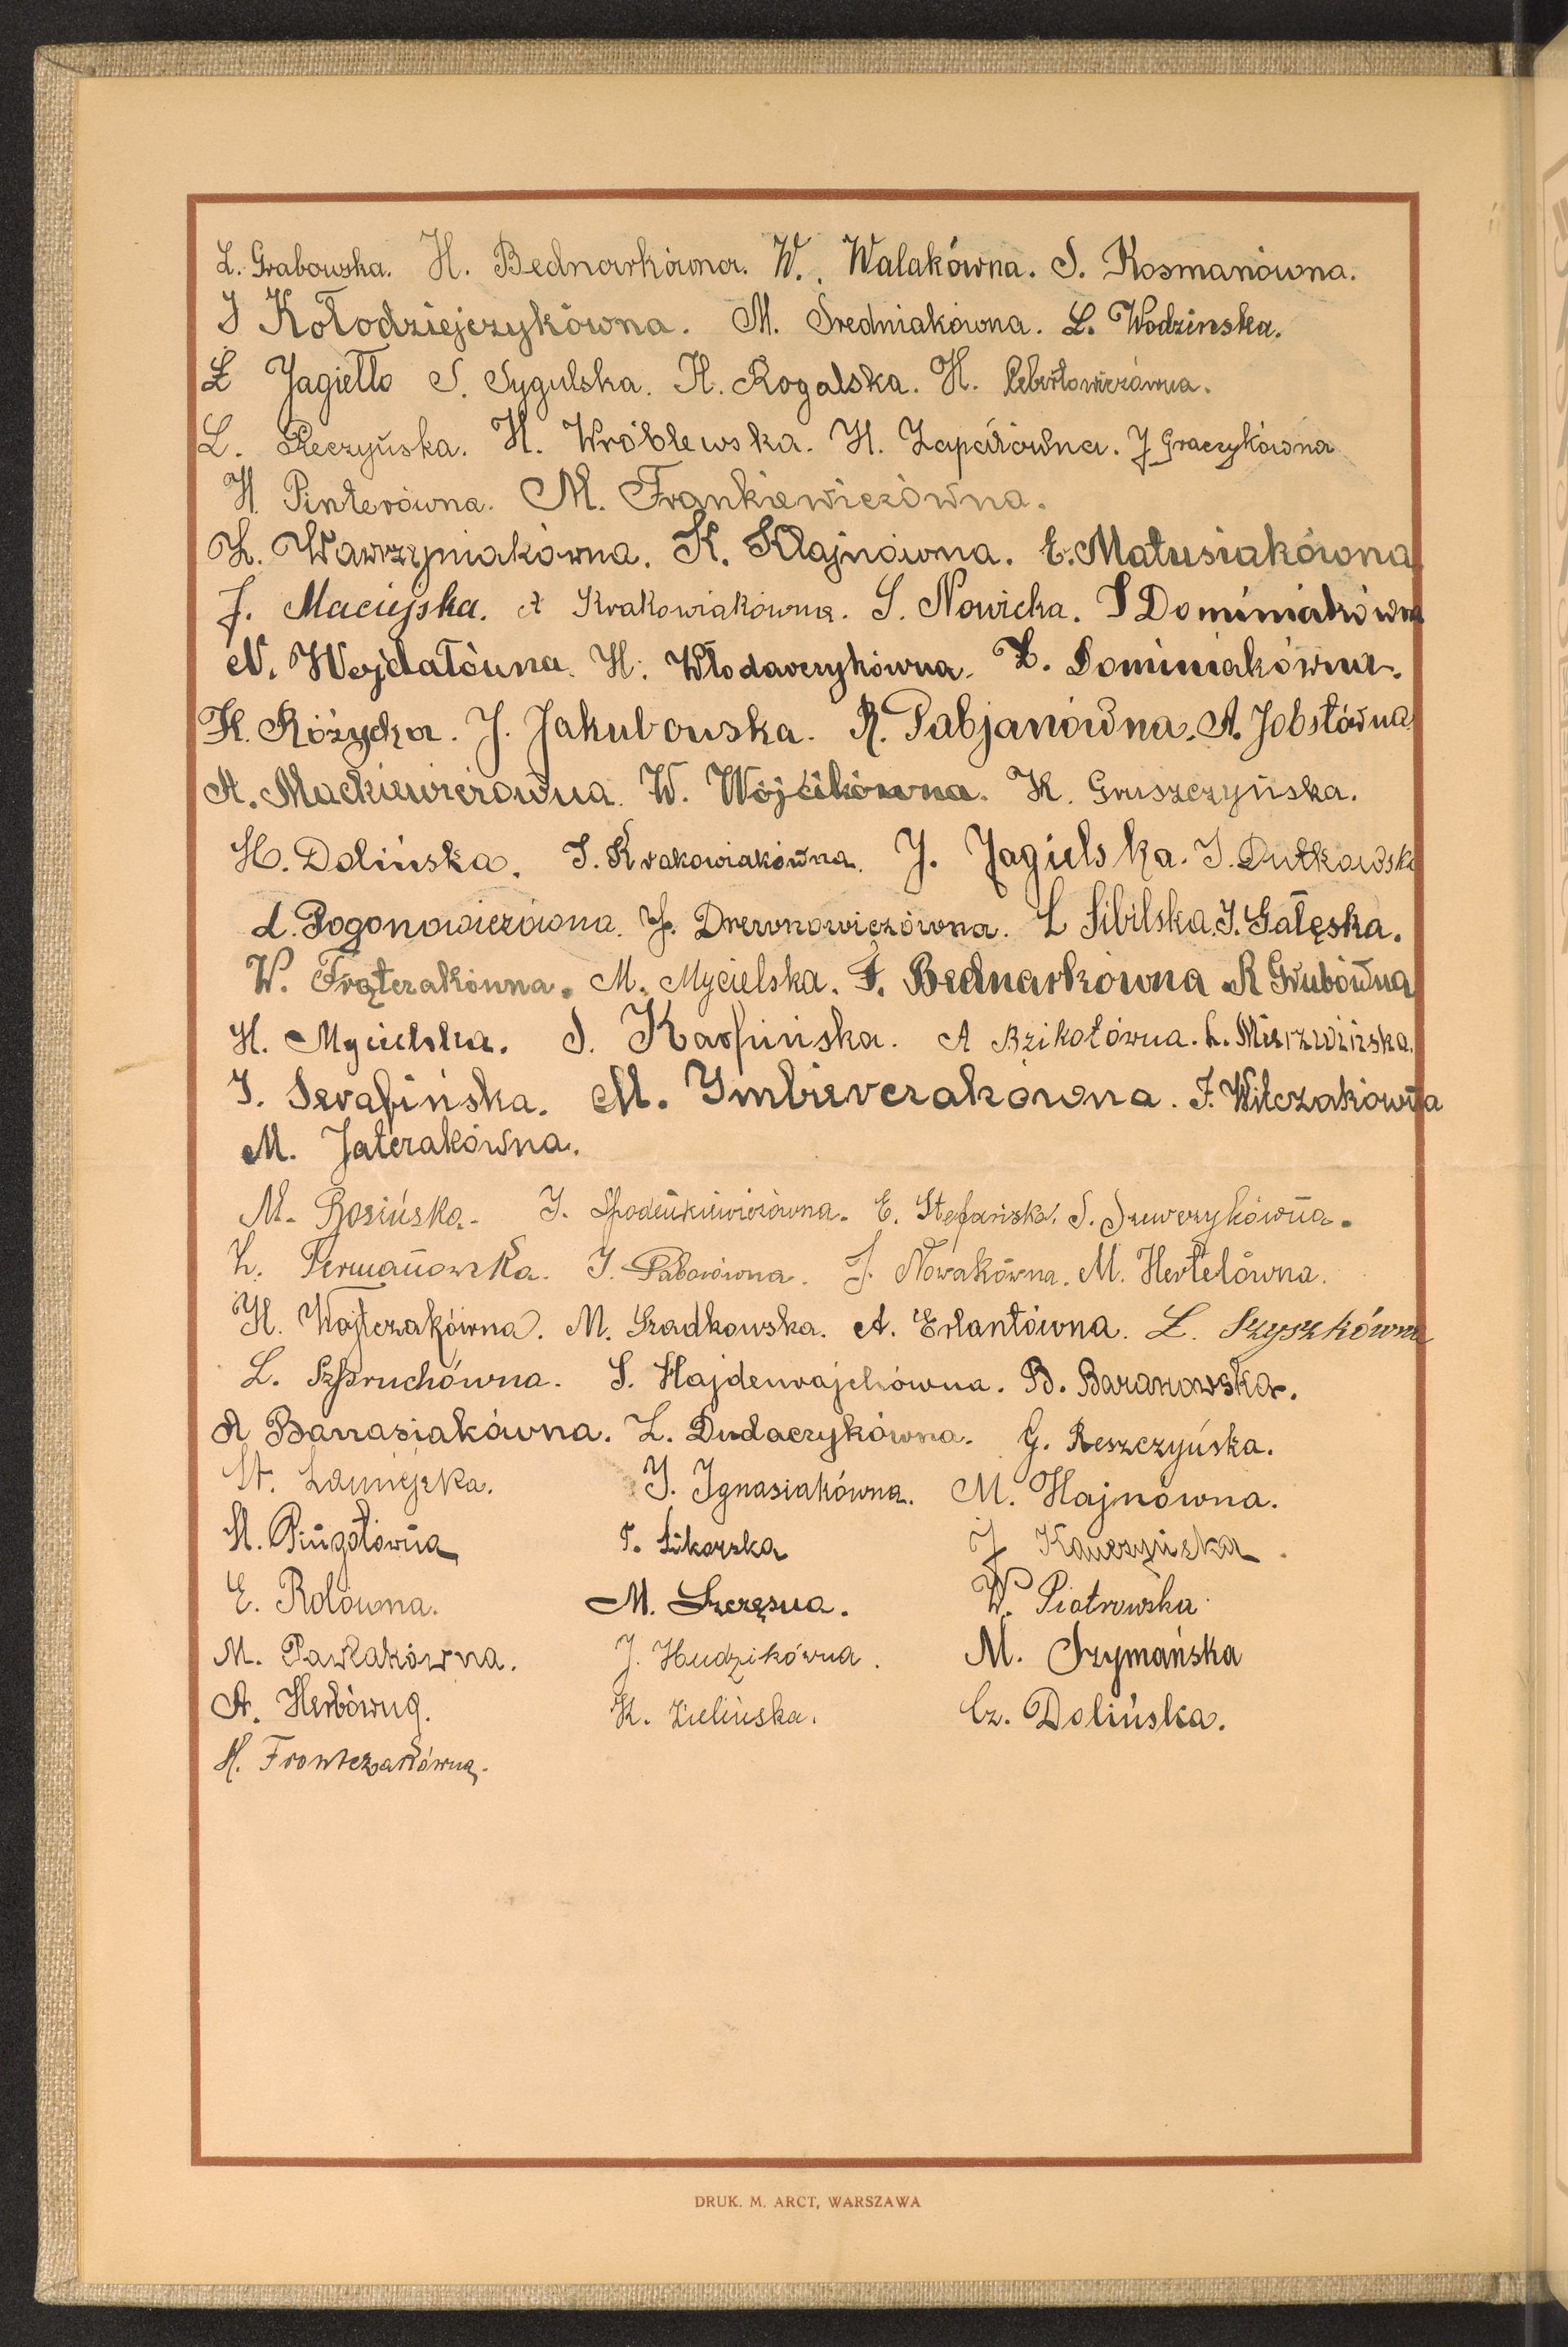 L. Grabowska. H. Bednarkówna. W. Walakówna. S. Kosmanówna.
J Kołodziejczykówna. M. Średniakówna. L. Wodzinska.
Ł Jagiełło S. Sygulska. H. Rogalska. H.
L. Pieczyńska. H. Wróblewska. H. J Graczykówna
H. Pinterówna. M. Frankiewiczówna.
Z. Wawrzyniakówna. K. Klajnówna. E. Matusiakówna
J. Maciejska. A Krakowiakówna. S. Nowicka. S Dominiakówna
N. Wojdałówna. H. Włodarczykówna. Z. Dominiakówna.
K. Różycka. J. Jakubowska. R. Pabjanówna. A. Jobstówna
A. Mackiewiczówna. W. Wójcikówna. K. Gruszczyńska.
H. Dolińska. S. Krakowiakówna. J. Jagielska. J. Dutkowska
L. Pogonowiczówna. J. Drewnowiczówna. L Sibilska. J. Gałęska.
W. Frątczakówna. M. Mycielska. F. Bednarkówna R Grubówna
H. Mycielska. S. Karpińska. A Bzikotówna. L. Mierzwińska.
J. Serafińska. M. Imbierczakówna. F. Witczakówna
M. Jatczakówna.
M. Rosińska. J. Spodeńkiewiczówna. E. Stefańska. S. Szewczykówna.
Z. Permanowska. J. Paborówna. J. Nowakówna. M. Hertelówna.
H. Wojtczakówna. M. Gradkowska. A. Erlantówna. Z. Szyszkówna
L. Szpruchówna. S. Hajdenrajchówna. B. Baranowska.
A Banasiakówna. Z. Dudaczykówna. G. Reszczyńska.
J. Ignasiakówna. M. Hajnówna.
H. Pingotówna T. Sikorska J Kawczyńska.
E. Rolówna. M. Szczęsna. W. Piotrowska
M. Pawlakówna. J. Hudzikówna. M. Szymańska
A. Herbówna. K. Zielińska. Cz. Dolińska.
H. Frontczakówna.
DRUK. M. ARCT, WARSZAWA